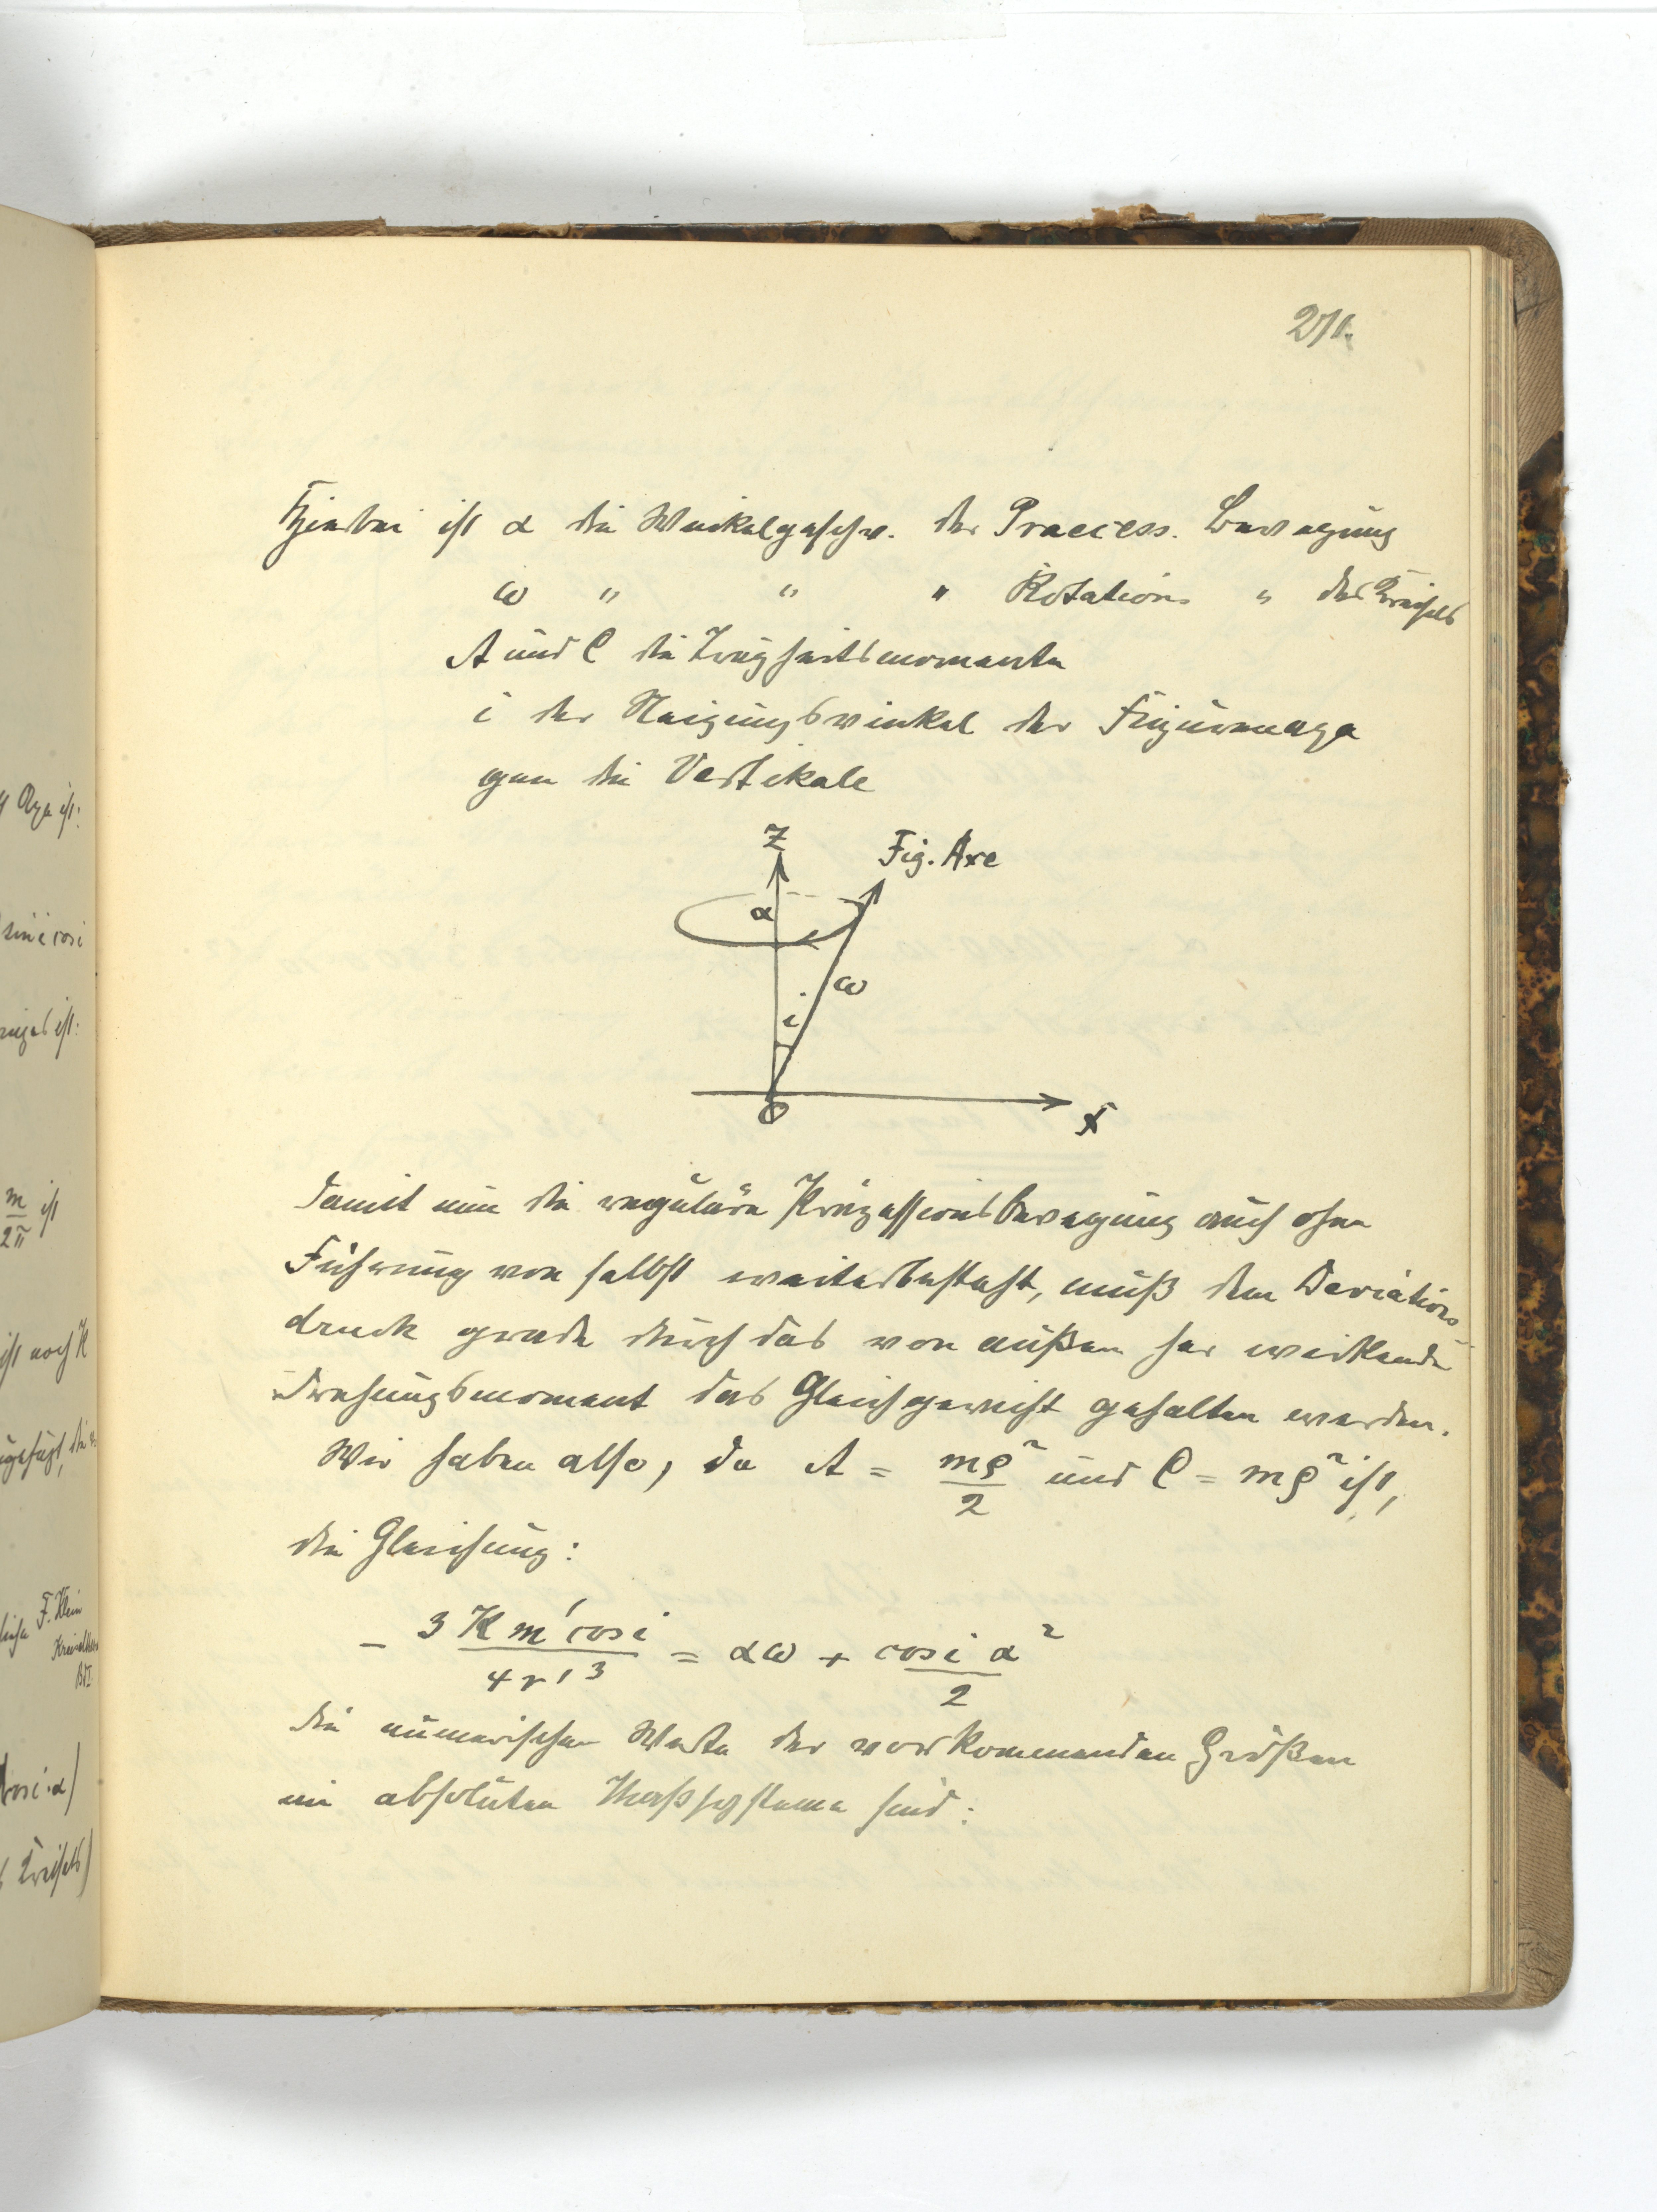 271.
Hierbei ist α die Winkelgeschw. der Praecess. Bewegung
ω " " " Rotations " des Kreisels
A und C die Trägheitsmomente
i der Neigungswinkel der Figurenaxe
gen die Vertikale
Z
Fig. Axe
α
ω
i
O
X
Damit nun die reguläre Präzessionsbewegung auch ohne
Führung von selbst weiterbesteht, muß dem Deviations-
druck grade durch das von außen her wirkende
Drehungsmoment das Gleichgewicht gehalten werden.
Wir haben also, da A = mϱ²/2 und C = mϱ² ist,
die Gleichung:
− 3 K m' cos i / 4 r'³ = αω + cos i α²/2
die numerischen Werte der vorkommenden Größen
im absoluten Maßsysteme sind:
Axe ist:
sin i cos i
m/2π ist
ist noch K
F. Klein
cos i·α)
Kreisels)